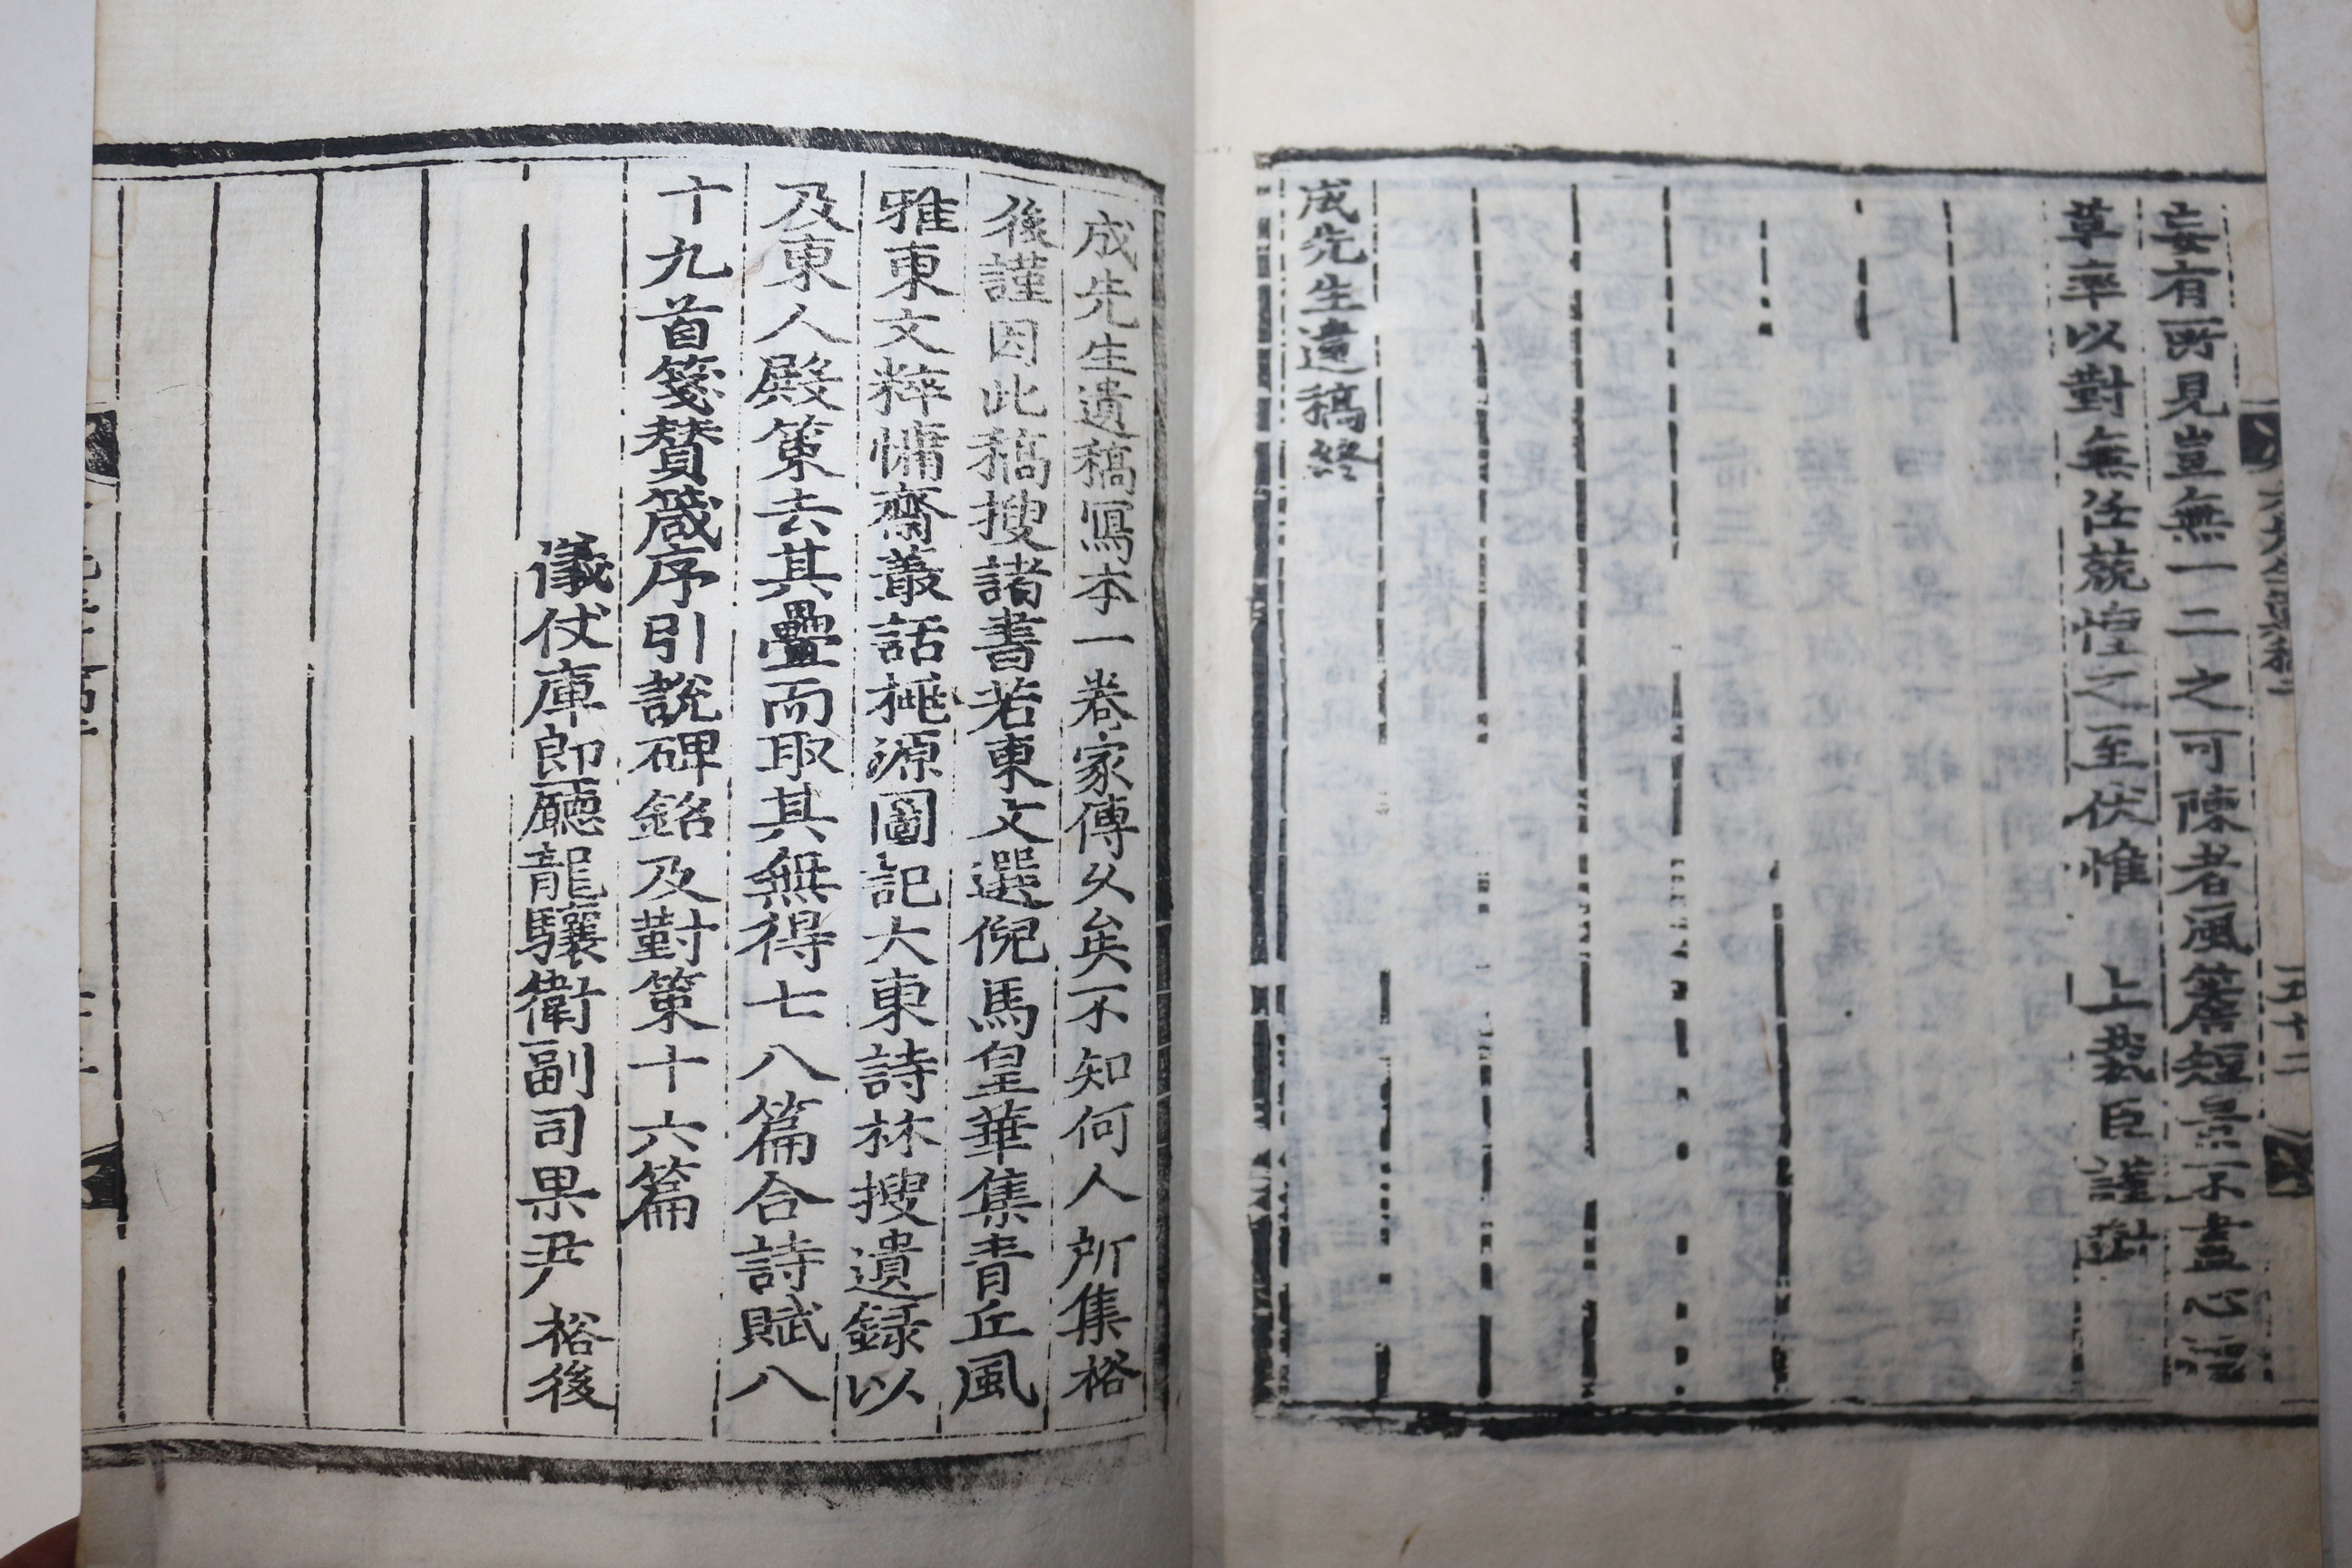 妄有所見豈無一二之可陳者風簷短景不盡心
草率以對無任兢惶之至伏惟 上裁臣謹對
成先生遺稿終
五十二
成先生遺稿寫本一卷家傳久矣不知何人所集裕
後謹因此稿搜諸書若東文選倪馬皇華集青丘風
雅東文粹慵齋叢話桃源圖記大東詩林搜遺錄以
及東人殿策去其疊而取其無得七八篇合詩賦八
十九首箋贊箴序引說碑銘及對策十六篇
儀仗庫郎廳龍驤衛副司果尹裕後